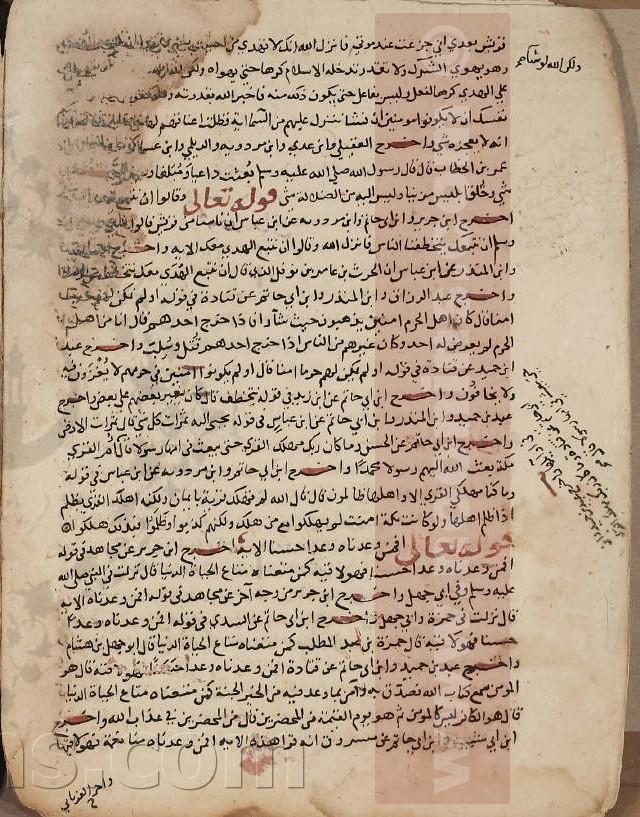 قريش يعدي اني جزعت عند موتي فانزل الله انك لا تهدي من احببت
وهو يهوى الشرك ولا تقدر تدخله الاسلام كرها حتى يهواه ولكن الله
على الهدى كرها لفعل وليس بفاعل حتى يكون ذلك منه فاخبر الله بقدرته وهو
نفسك ان لا يكونوا مومنين ان نشا ننزل عليهم من السماء اية فظلت اعناقهم لها
انه لا يعجزه شي واخرج العقيلي وابن عدي وابن مردويه والديلمي وابن عساكر
عمر بن الخطاب قال قال رسول الله صلى الله عليه وسلم بعثت داعيا ومبلغا وليس
شي وخلق ابليس مزينا وليس اليه من الضلالة شي قوله تعالى وقالوا ان
اخرج ابن جرير وابن ابي حاتم وابن مردويه عن ابن عباس ان ناسا من قريش قالوا
وسلم ان نتبعك يتخطفنا الناس فانزل الله وقالوا ان نتبع الهدى معك الاية واخرج
وابن المنذر عن ابن عباس ان الحرث بن عامر بن نوفل الذي قال ان نتبع الهدى معك
واخرج عبد الرزاق وابن المنذر وابن ابي حاتم عن قتادة في قوله اولم نمكن لهم
امنا قال كان اهل الحرم امنين يذهبون حيث شاوا فاذا خرج احدهم قال انا من اهل
الحرم لم يعرض له احد وكان غيرهم من الناس اذا خرج احدهم قتل وسلب واخرج عبد
ابن حميد عن قتادة في قوله اولم نمكن لهم حرما امنا قال اولم يكونوا امنين في حرمهم لا يغزون فيه
ولا يخافون واخرج ابن ابي حاتم عن ابن زيد في قوله نتخطف قال كان يغير بعضهم على بعض واخرج
عبد بن حميد وابن المنذر وابن ابي حاتم عن ابن عباس في قوله يجبى اليه ثمرات كل شي قال ثمرات الارض
واخرج ابن ابي حاتم عن الحسن وما كان ربك مهلك القرى حتى يبعث في امها رسولا قال ام القرى
مكة بعث الله اليهم رسولا محمدا واخرج ابن ابي حاتم وابن مردويه عن ابن عباس في قوله
وما كنا مهلكي القرى الا واهلها ظالمون قال قال الله لم نهلك قرية بايمان ولكنه اهلك القرى بظلم
اذا ظلم اهلها ولو كانت مكة امنت لم يهلكوا مع من هلك ولكنهم كذبوا وظلموا فبذلك هلكوا
قوله تعالى افمن وعدناه وعدا حسنا الاية اخرج ابن جرير عن مجاهد في قوله
افمن وعدناه وعدا حسنا فهو لاقيه كمن متعناه متاع الحياة الدنيا قال نزلت في النبي صلى الله
عليه وسلم وفي ابي جهل واخرج ابن جرير من وجه آخر عن مجاهد في قوله افمن وعدناه الاية
قال نزلت في حمزة وابي جهل واخرج ابن ابي حاتم عن السدي في قوله افمن وعدناه وعدا
حسنا فهو لاقيه قال حمزة بن عبد المطلب كمن متعناه متاع الحياة الدنيا قال ابو جهل بن هشام
واخرج عبد بن حميد وابن ابي حاتم عن قتادة افمن وعدناه وعدا حسنا فهو لاقيه قال هو
المومن سمع كتاب الله فصدق به وآمن بما وعد فيه من الخير والجنة كمن متعناه متاع الحياة الدنيا
قال هو الكافر ليس كالمومن ثم هو يوم القيمة من المحضرين قال من المحضرين في عذاب الله واخرج
ابن ابي شيبة وابن ابي حاتم عن مسروق انه قرا هذه الاية افمن وعدناه
ولكن الله لو شا